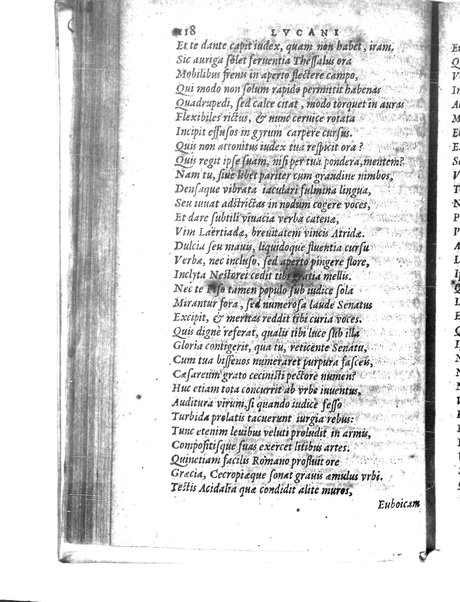 118 LVCANI
Et te dante capit iudex, quam non habet, iram,
Sic auriga solet feruentia Thessalus ora
Mobilibus frenis in aperto flectere campo,
Qui modo non solum rapido permittit habenas
Quadrupedi, sed calce citat, modo torquet in auras
Flexibiles rictus, & nunc ceruice rotata
Incipit effusos in gyrum carpere cursus.
Quis non attonitus iudex tua respicit ora?
Quis regit ipse suam, nisi per tua pondera, mentem?
Nam tu, siue libet pariter cum grandine nimbos,
Densaque vibrata iaculari fulmina lingua,
Seu iuuat adstrictas in nodum cogere voces,
Et dare subtili viuacia verba catenæ,
Vim Laërtiadæ, breuitatem vincis Atridæ.
Dulcia seu mauis, liquidoque fluentia cursu
Verba, nec incluso, sed aperto pingere flore,
Inclyta Nestorei cedit tibi gratia mellis.
Nec te Piso tamen populo sub iudice sola
Mirantur fora, sed numerosa laude Senatus
Excipit, & meritas reddit tibi curia voces.
Quis dignè referat, qualis tibi luce sub illa
Gloria contigerit, qua tu, reticente Senatu,
Cum tua bissenos numeraret purpura fasceis,
Cæsareum grato cecinisti pectore numen?
Huc etiam tota concurrit ab vrbe iuuentus,
Auditura virum, si quando iudice fesso
Turbida prolatis tacuerunt iurgia rebus:
Tunc etenim leuibus veluti proludit in armis,
Compositisque suas exercet litibus artes.
Quinetiam facilis Romano profluit ore
Græcia, Cecropiæque sonat grauis æmulus vrbi.
Testis Acidalia quæ condidit alite muros,
Euboicam